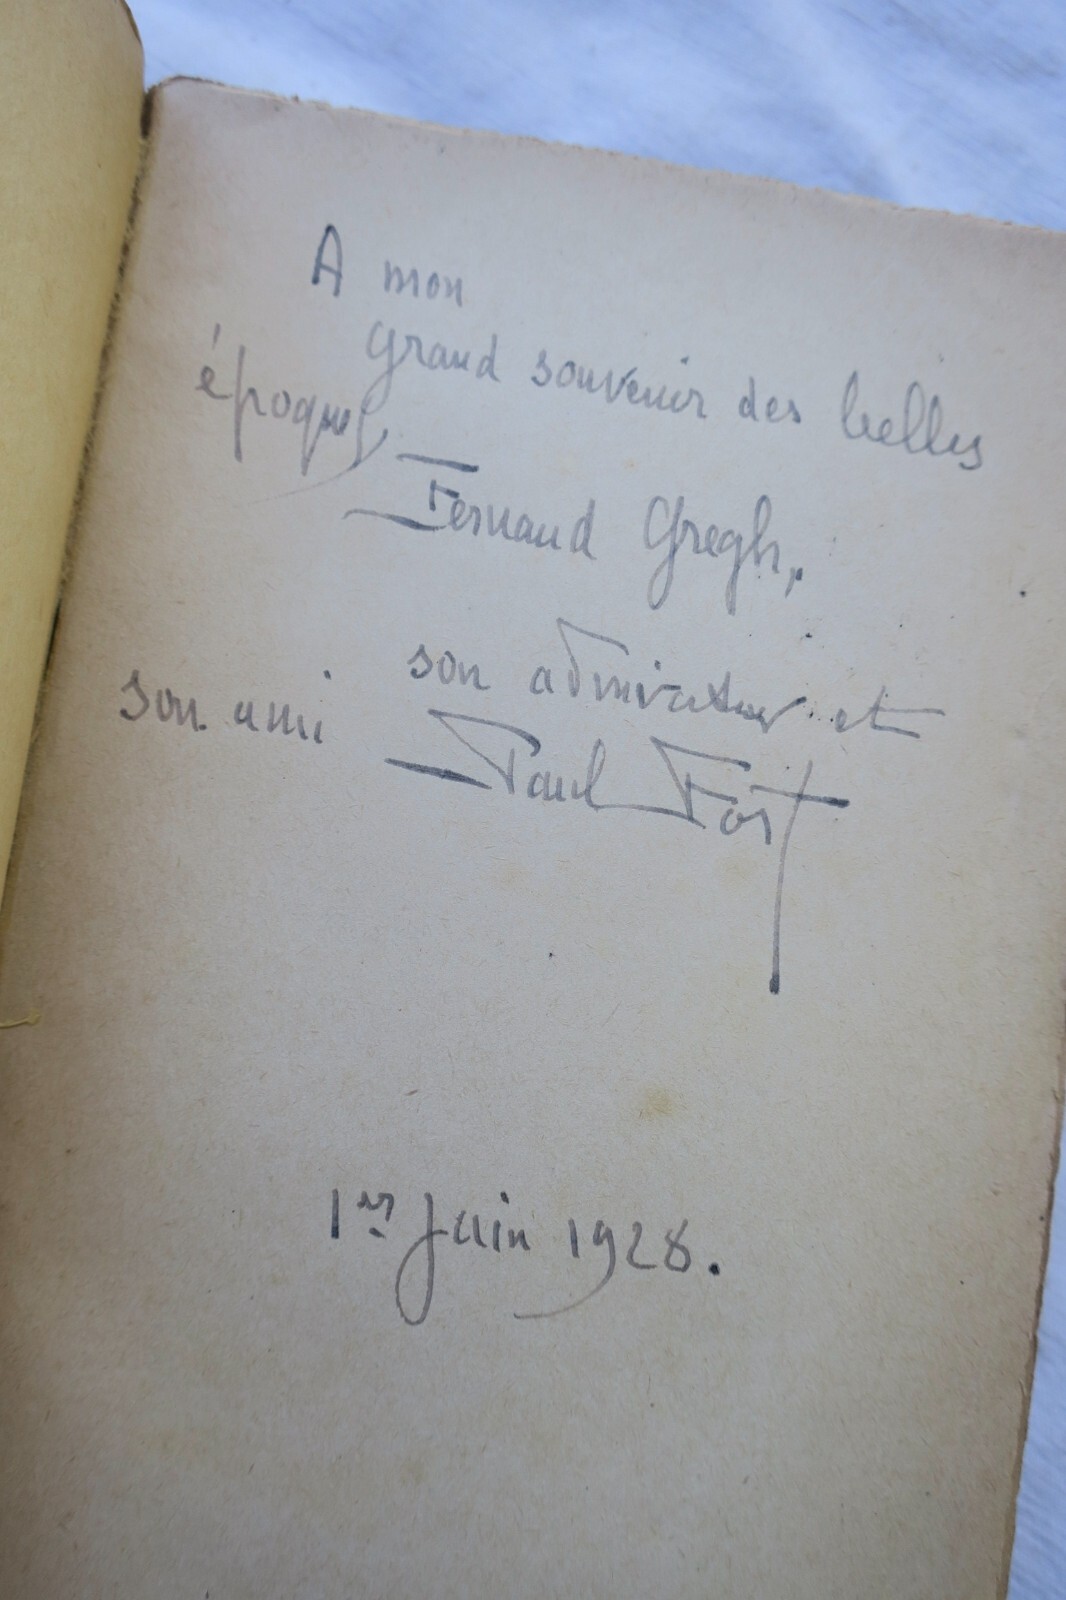 A mon
grand souvenir des belles
époques,
Fernand Gregh,
son admirateur et
son ami Paul Fort
1er Juin 1928.